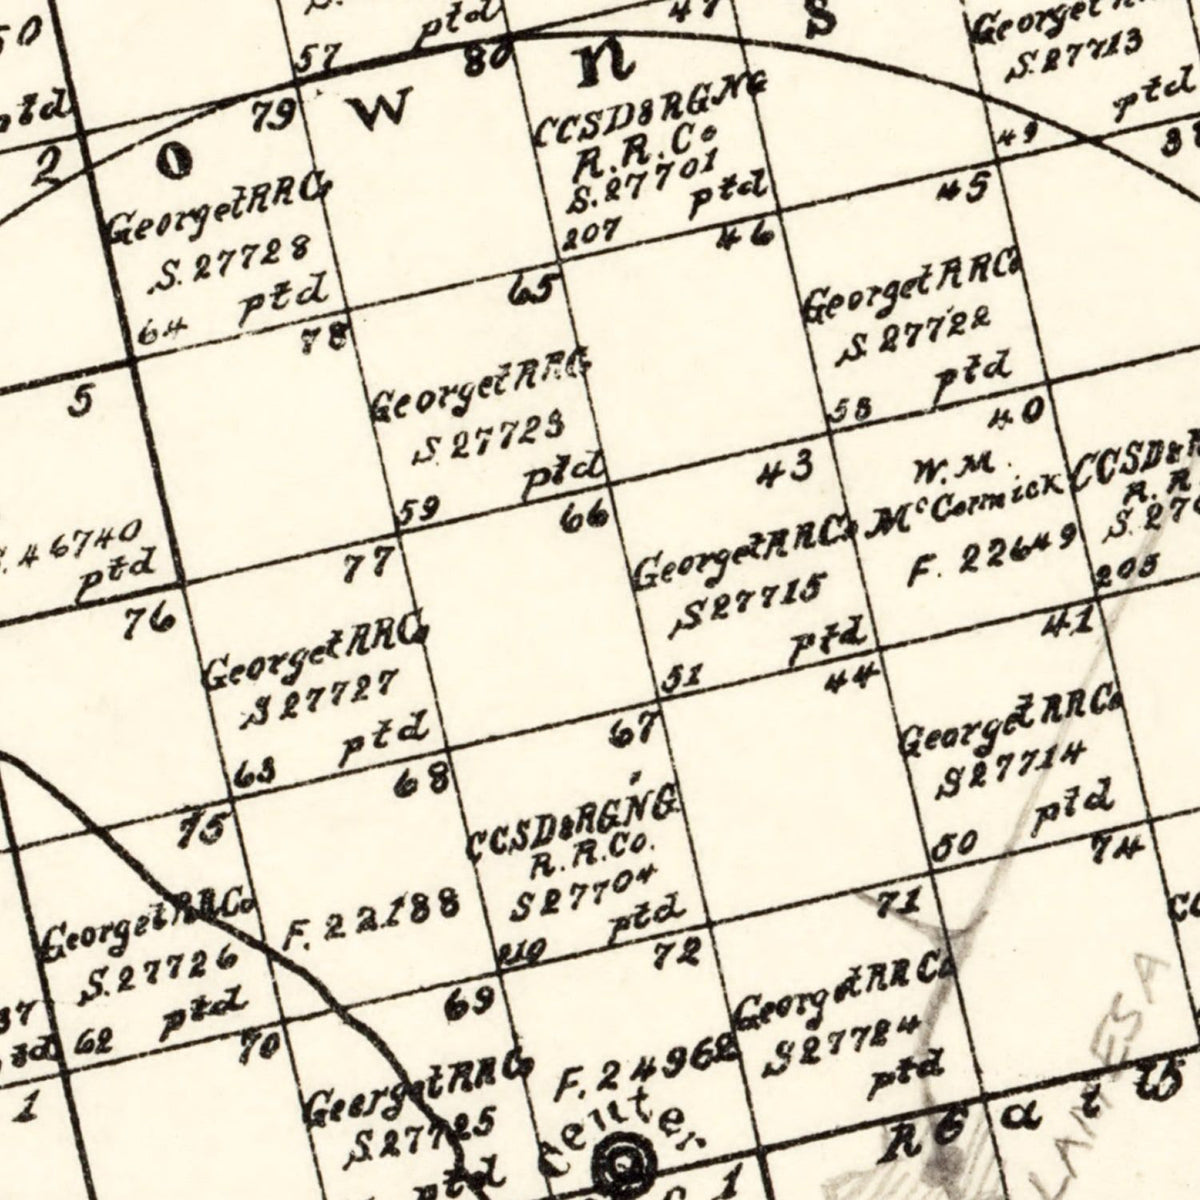 50
ptd
57
ptd
80
47
S
Georget
S.27713
ptd
79
W
n
CCSD&RGNG
R.R.Co
S.27701
ptd
207
49
2
O
Georget RR Co
S.27728
ptd
64
65
46
45
78
Georget RR Co
S.27722
ptd
58
5
Georget RR Co
S.27723
ptd
59
66
43
40
W.M.
McCormick
F. 22649
CCSD&R
R.R.
205
S.46740
ptd
77
Georget RR Co
S27715
ptd
51
76
44
41
Georget RR Co
S27727
ptd
63
67
68
Georget RR Co
S27714
ptd
50
75
CCSD&RGNG
R.R.Co.
S27704
ptd
210
74
71
Georget RR Co
S.27726
ptd
62
F. 22188
72
37
69
70
1
Georget RR Co
S27724
ptd
F. 24962
Georget RR Co
S.27725
ptd
Center
LAMESA
R 6 a t t
1